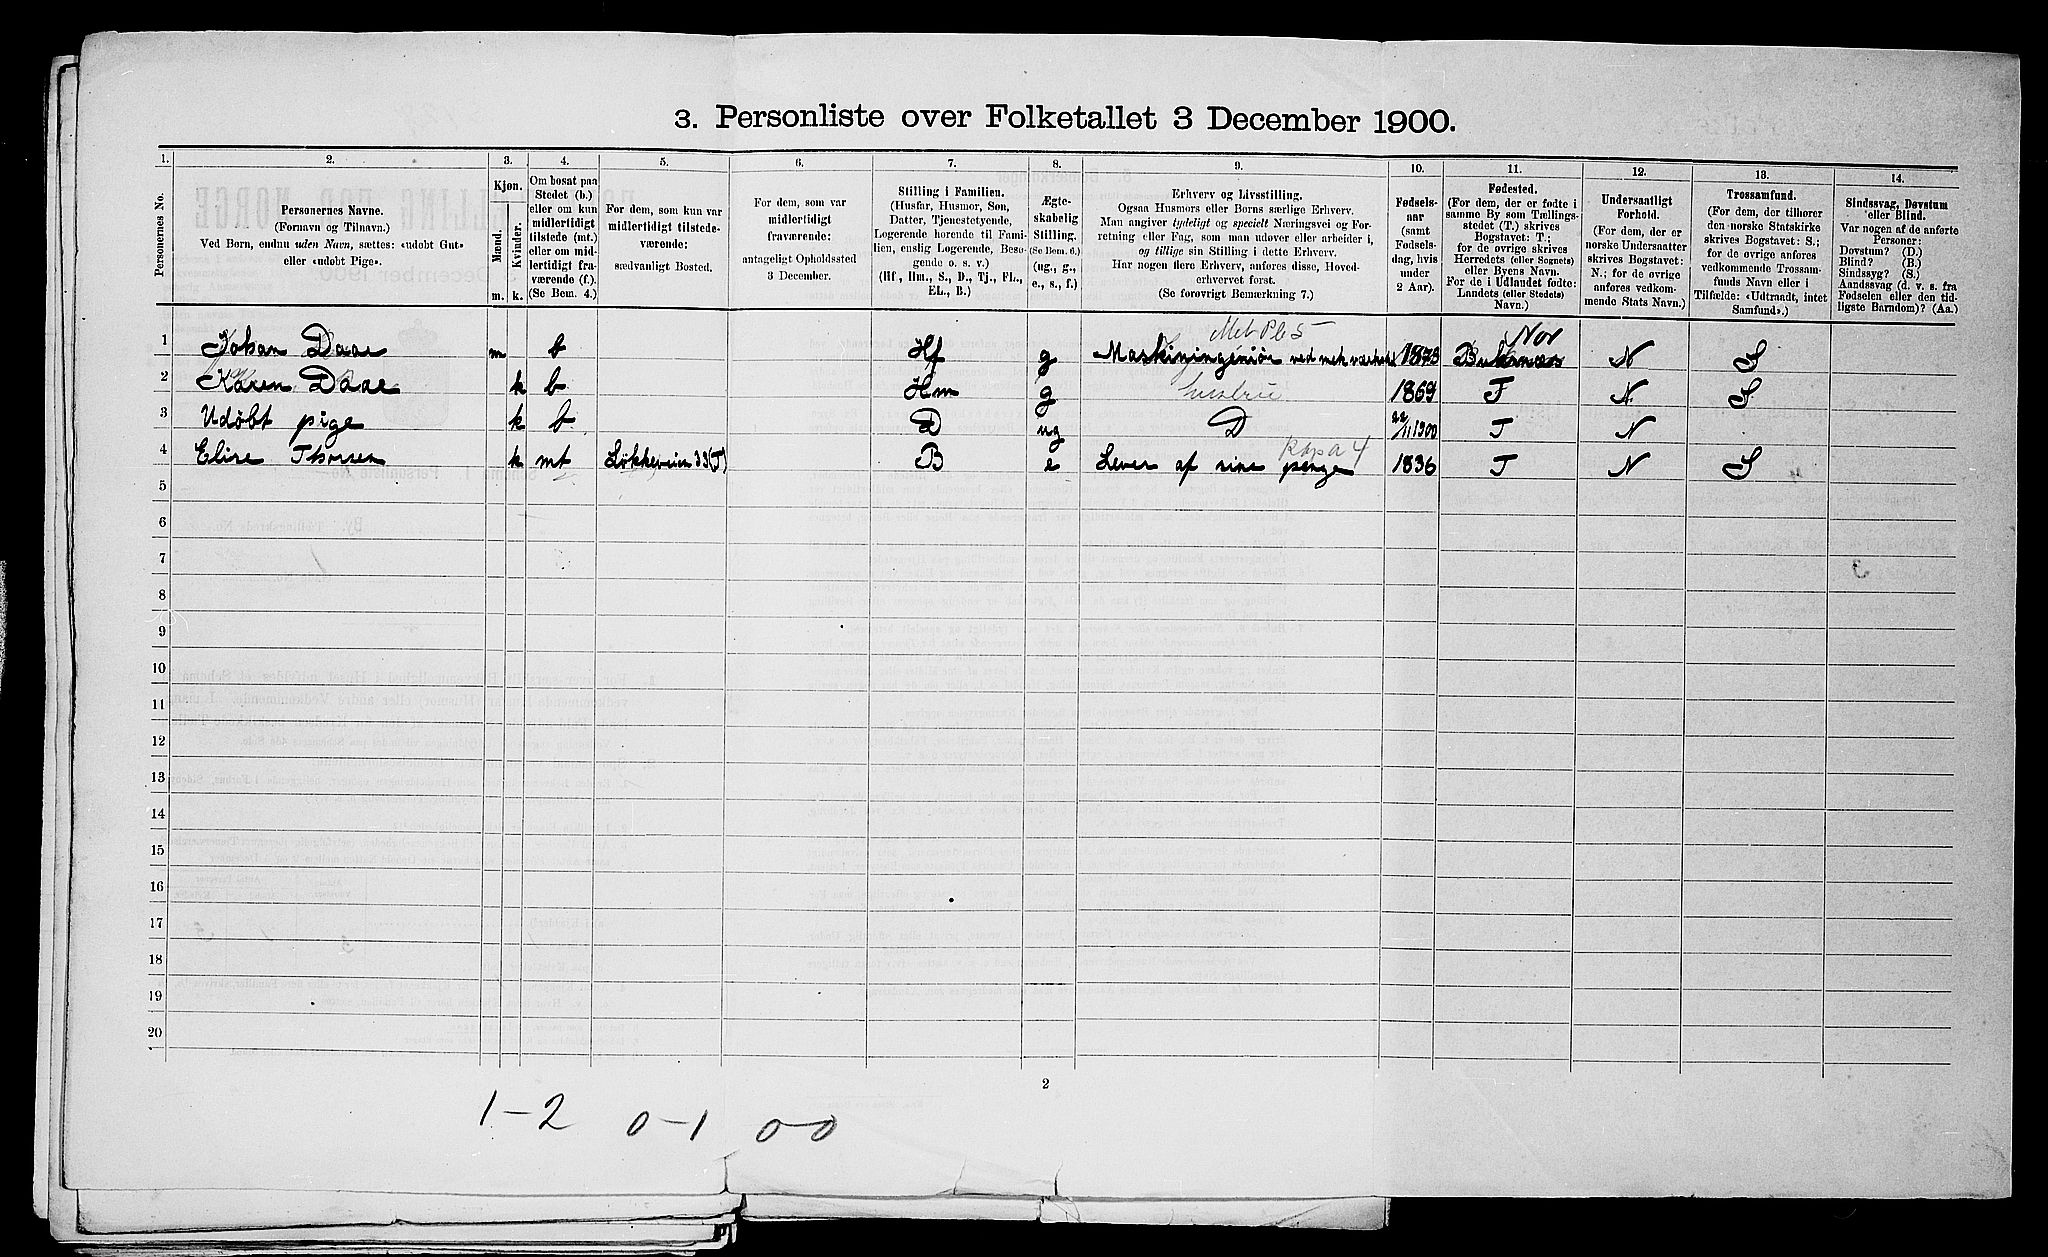 3. Personliste over Folketallet 3 December 1900.
1. 2. 3. 4. 5. 6. 7. 8. 9. 10. 11. 12. 13. 14.
Personernes No.
Personernes Navne.
(Fornavn og Tilnavn.)
Ved Børn, endnu uden Navn, sættes: «udøbt Gut»
eller «udøbt Pige».
Kjøn.
Mænd. Kvinder.
m. k.
Om bosat paa
Stedet (b.)
eller om kun
midlertidigt
tilstede (mt.)
eller om mid-
lertidigt fra-
værende (f.).
(Se Bem. 4.)
For dem, som kun var
midlertidigt tilstede-
værende:
sædvanligt Bosted.
For dem, som var
midlertidigt
fraværende:
antageligt Opholdssted
3 December.
Stilling i Familien.
(Husfar, Husmor, Søn,
Datter, Tjenestetyende,
Logerende hørende til Fami-
lien, enslig Logerende, Besø-
gende o. s. v.)
(Hf, Hm., S., D., Tj., FL.,
EL., B.)
Ægte-
skabelig
Stilling.
(Se Bem. 6.)
(ug., g.,
e., s., f.)
Erhverv og Livsstilling.
Ogsaa Husmors eller Børns særlige Erhverv.
Man angiver tydeligt og specielt Næringsvei og For-
retning eller Fag, som man udøver eller arbeider i,
og tillige sin Stilling i dette Erhverv.
Har nogen flere Erhverv, anføres disse, Hoved-
erhvervet først.
(Se forøvrigt Bemærkning 7.)
Fødsels-
aar
(samt
Fødsels-
dag, hvis
under
2 Aar).
Fødested.
(For dem, der er fødte i
samme By som Tællings-
stedet (T.) skrives
Bogstavet: T.;
for de øvrige skrives
Herredets (eller Sognets)
eller Byens Navn.
For de i Udlandet fødte:
Landets (eller Stedets)
Navn.)
Undersaatligt
Forhold.
(For dem, der er
norske Undersaatter
skrives Bogstavet:
N.; for de øvrige
anføres vedkom-
mende Stats Navn.)
Trossamfund.
(For dem, der tilhører
den norske Statskirke
skrives Bogstavet: S.;
for de øvrige anføres
vedkommende Trossam-
funds Navn eller i
Tilfælde: «Udtraadt, intet
Samfund».)
Sindssvag, Døvstum
eller Blind.
Var nogen af de anførte
Personer:
Døvstum? (D.)
Blind? (B.)
Sindssyg? (S.)
Aandssvag (d. v. s. fra
Fødselen eller den tid-
ligste Barndom)? (Aa.)
1 Johan Daae m b Hf g Maskiningeniør ved mek værksted 1873 N S
Nor
2 Karen Daae k b Hm g 1869 T N S
3 Udøbt pige k b D ug D 22/11 1900 T N
4 Elise Thorsen k mt Løkkeveien 33 (T) B e Lever af sine penge 1836 T N S
Kapa 4
5
6
7
8
9
10
11
12
13
14
15
16
17
18
19
20
2
1-2 0-1 00